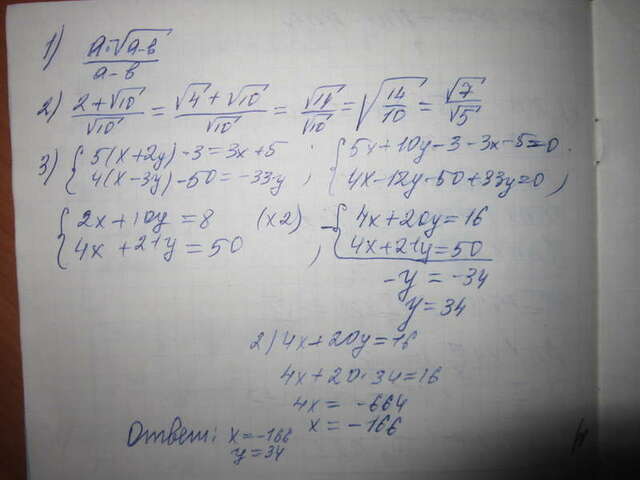 1) a·√(a-в) / a-в
2) 2+√10 / √10 = √4+√10 / √10 = √14 / √10 = √(14/10) = √7 / √5
3) { 5(x+2y)-3=3x+5 ; { 5x+10y-3-3x-5=0
4(x-3y)-50=-33y ; 4x-12y-50+33y=0 ,
{ 2x+10y=8 (x2) - { 4x+20y=16
4x+21y=50 , 4x+21y=50
-y = -34
y = 34
2) 4x+20y=16
4x+20·34=16
4x = -664
x = -166
Ответ: x=-166
y=34